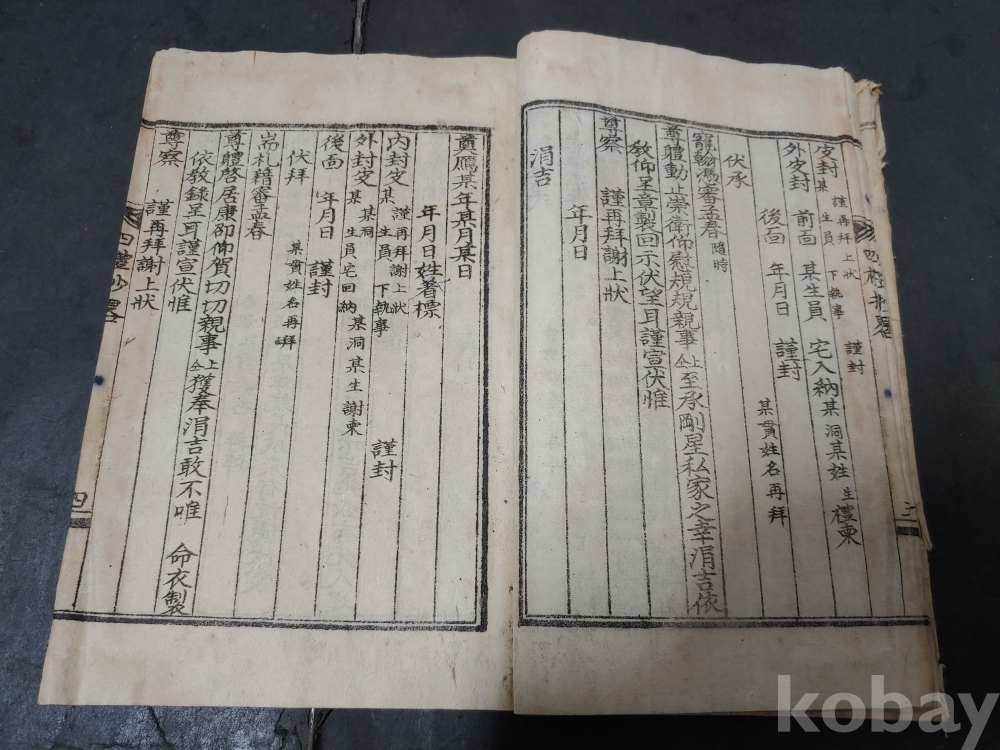 皮封 某 謹再拜上狀 生員 下執事 謹封
外皮封 前面 某生員 宅入納 某洞某姓生禮柬
後面 年月日 謹封
某貫姓名再拜
伏承
寵翰馮審孟春 隨時
尊體動止崇衛仰慰規規親事 仝上 至承剛星私家之幸涓吉依
敎仰呈章製回示伏望耳謹宣伏惟
尊察 謹再拜上狀
年月日
涓吉
奠鴈某年某月某日
年月日姓着標
內封皮 某 謹再拜謝上狀 生員 下執事 謹封
外封皮 某 某洞 生員宅回納 某洞某生謝柬
後面 年月日 謹封
某貫姓名再拜
伏拜
耑札藉審孟春
尊體啓居康卲仰賀切切親事 仝上 獲奉涓吉敢不唯 命衣製
依敎錄呈耳謹宣伏惟
尊察
謹再拜謝上狀
四禮抄畧
四
kobay